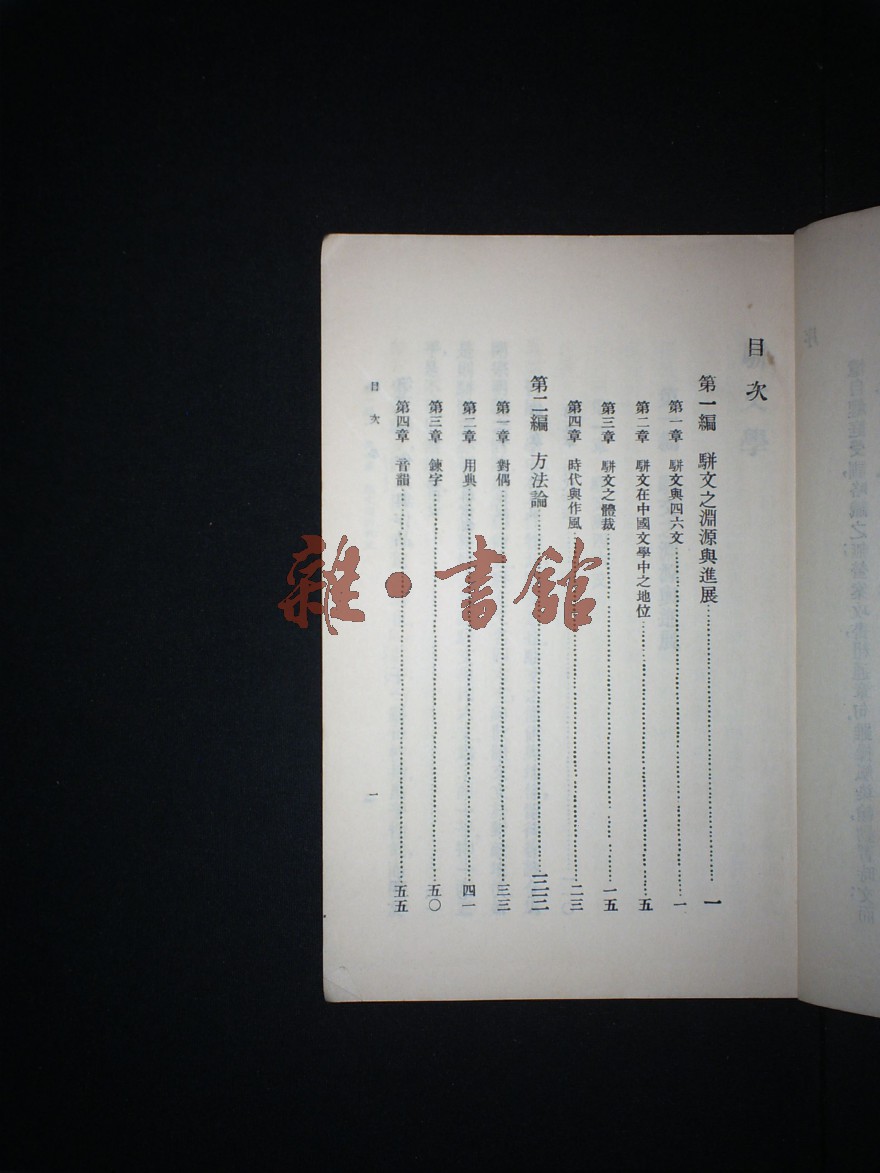 目次
第一編 駢文之淵源與進展……一
第一章 駢文與四六文……一
第二章 駢文在中國文學中之地位……五
第三章 駢文之體裁……一五
第四章 時代與作風……二三
第二編 方法論……三三
第一章 對偶……三三
第二章 用典……四一
第三章 鍊字……五〇
第四章 音韻……五五
目次
一
雜·書館
序